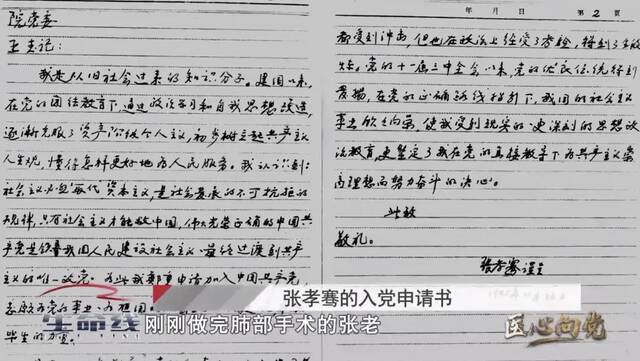 院党委
王书记：
我是从旧社会过来的知识分子。建国以来，
在党的团结教育下，通过政治学习和自我思想改造，
逐渐克服了资产阶级个人主义，初步树立起共产主义
人生观，懂得怎样更好地为人民服务。我认识到：
社会主义必然取代资本主义，是社会发展的不可抗拒的
规律，只有社会主义才能救中国，伟大光荣正确的中国共
产党是领导我国人民建设社会主义最终过渡到共产
主义的唯一政党。为此我郑重申请加入中国共产党，
志愿为党的事业，为祖国
毕生的力量。
年 月 日 第 2 页
都受到冲击，但也在政治上经受了考验，得到了
党的十一届三中全会以来，党的优良传统得到
发扬，在党的正确路线指引下，我国的社会主义
事业欣欣向荣，使我受到现实的更深刻的思想政
治教育，更坚定了我在党的直接教导下为共产主义崇
高理想而努力奋斗的决心。
此致
敬礼。
张孝骞谨呈
张孝骞的入党申请书
生命线
刚刚做完肺部手术的张老
医心向党